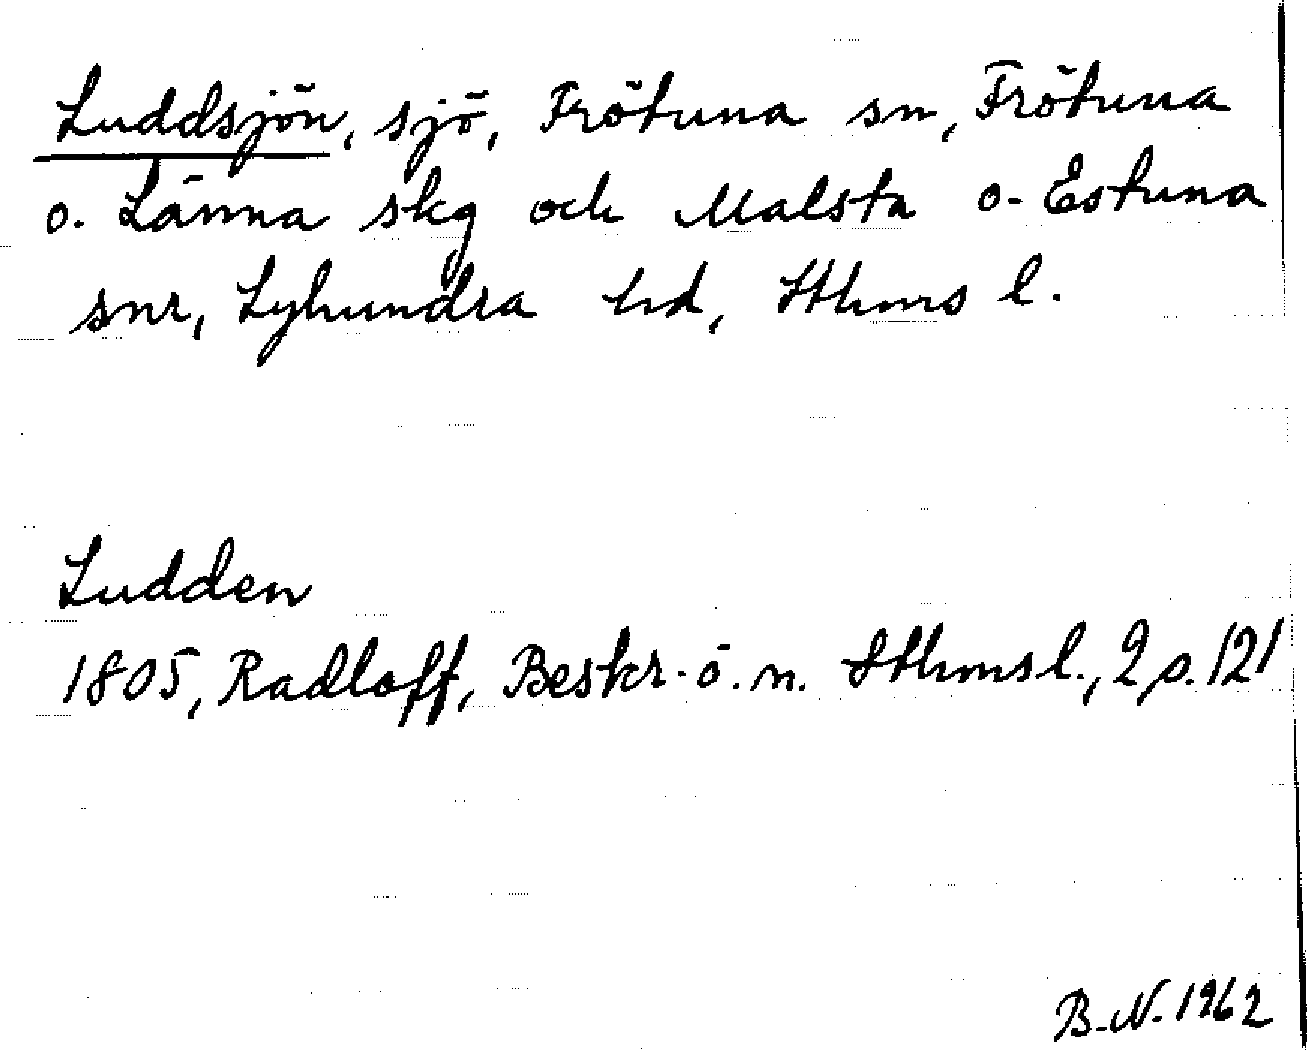 Luddsjön, sjö, Frötuna sn, Frötuna
o. Länna skg och Malsta o. Estuna
snr, Lyhundra hd, Sthms l.
Ludden
1805, Radloff, Beskr. ö. n. Sthms l., 2 p. 121
B.N. 1962